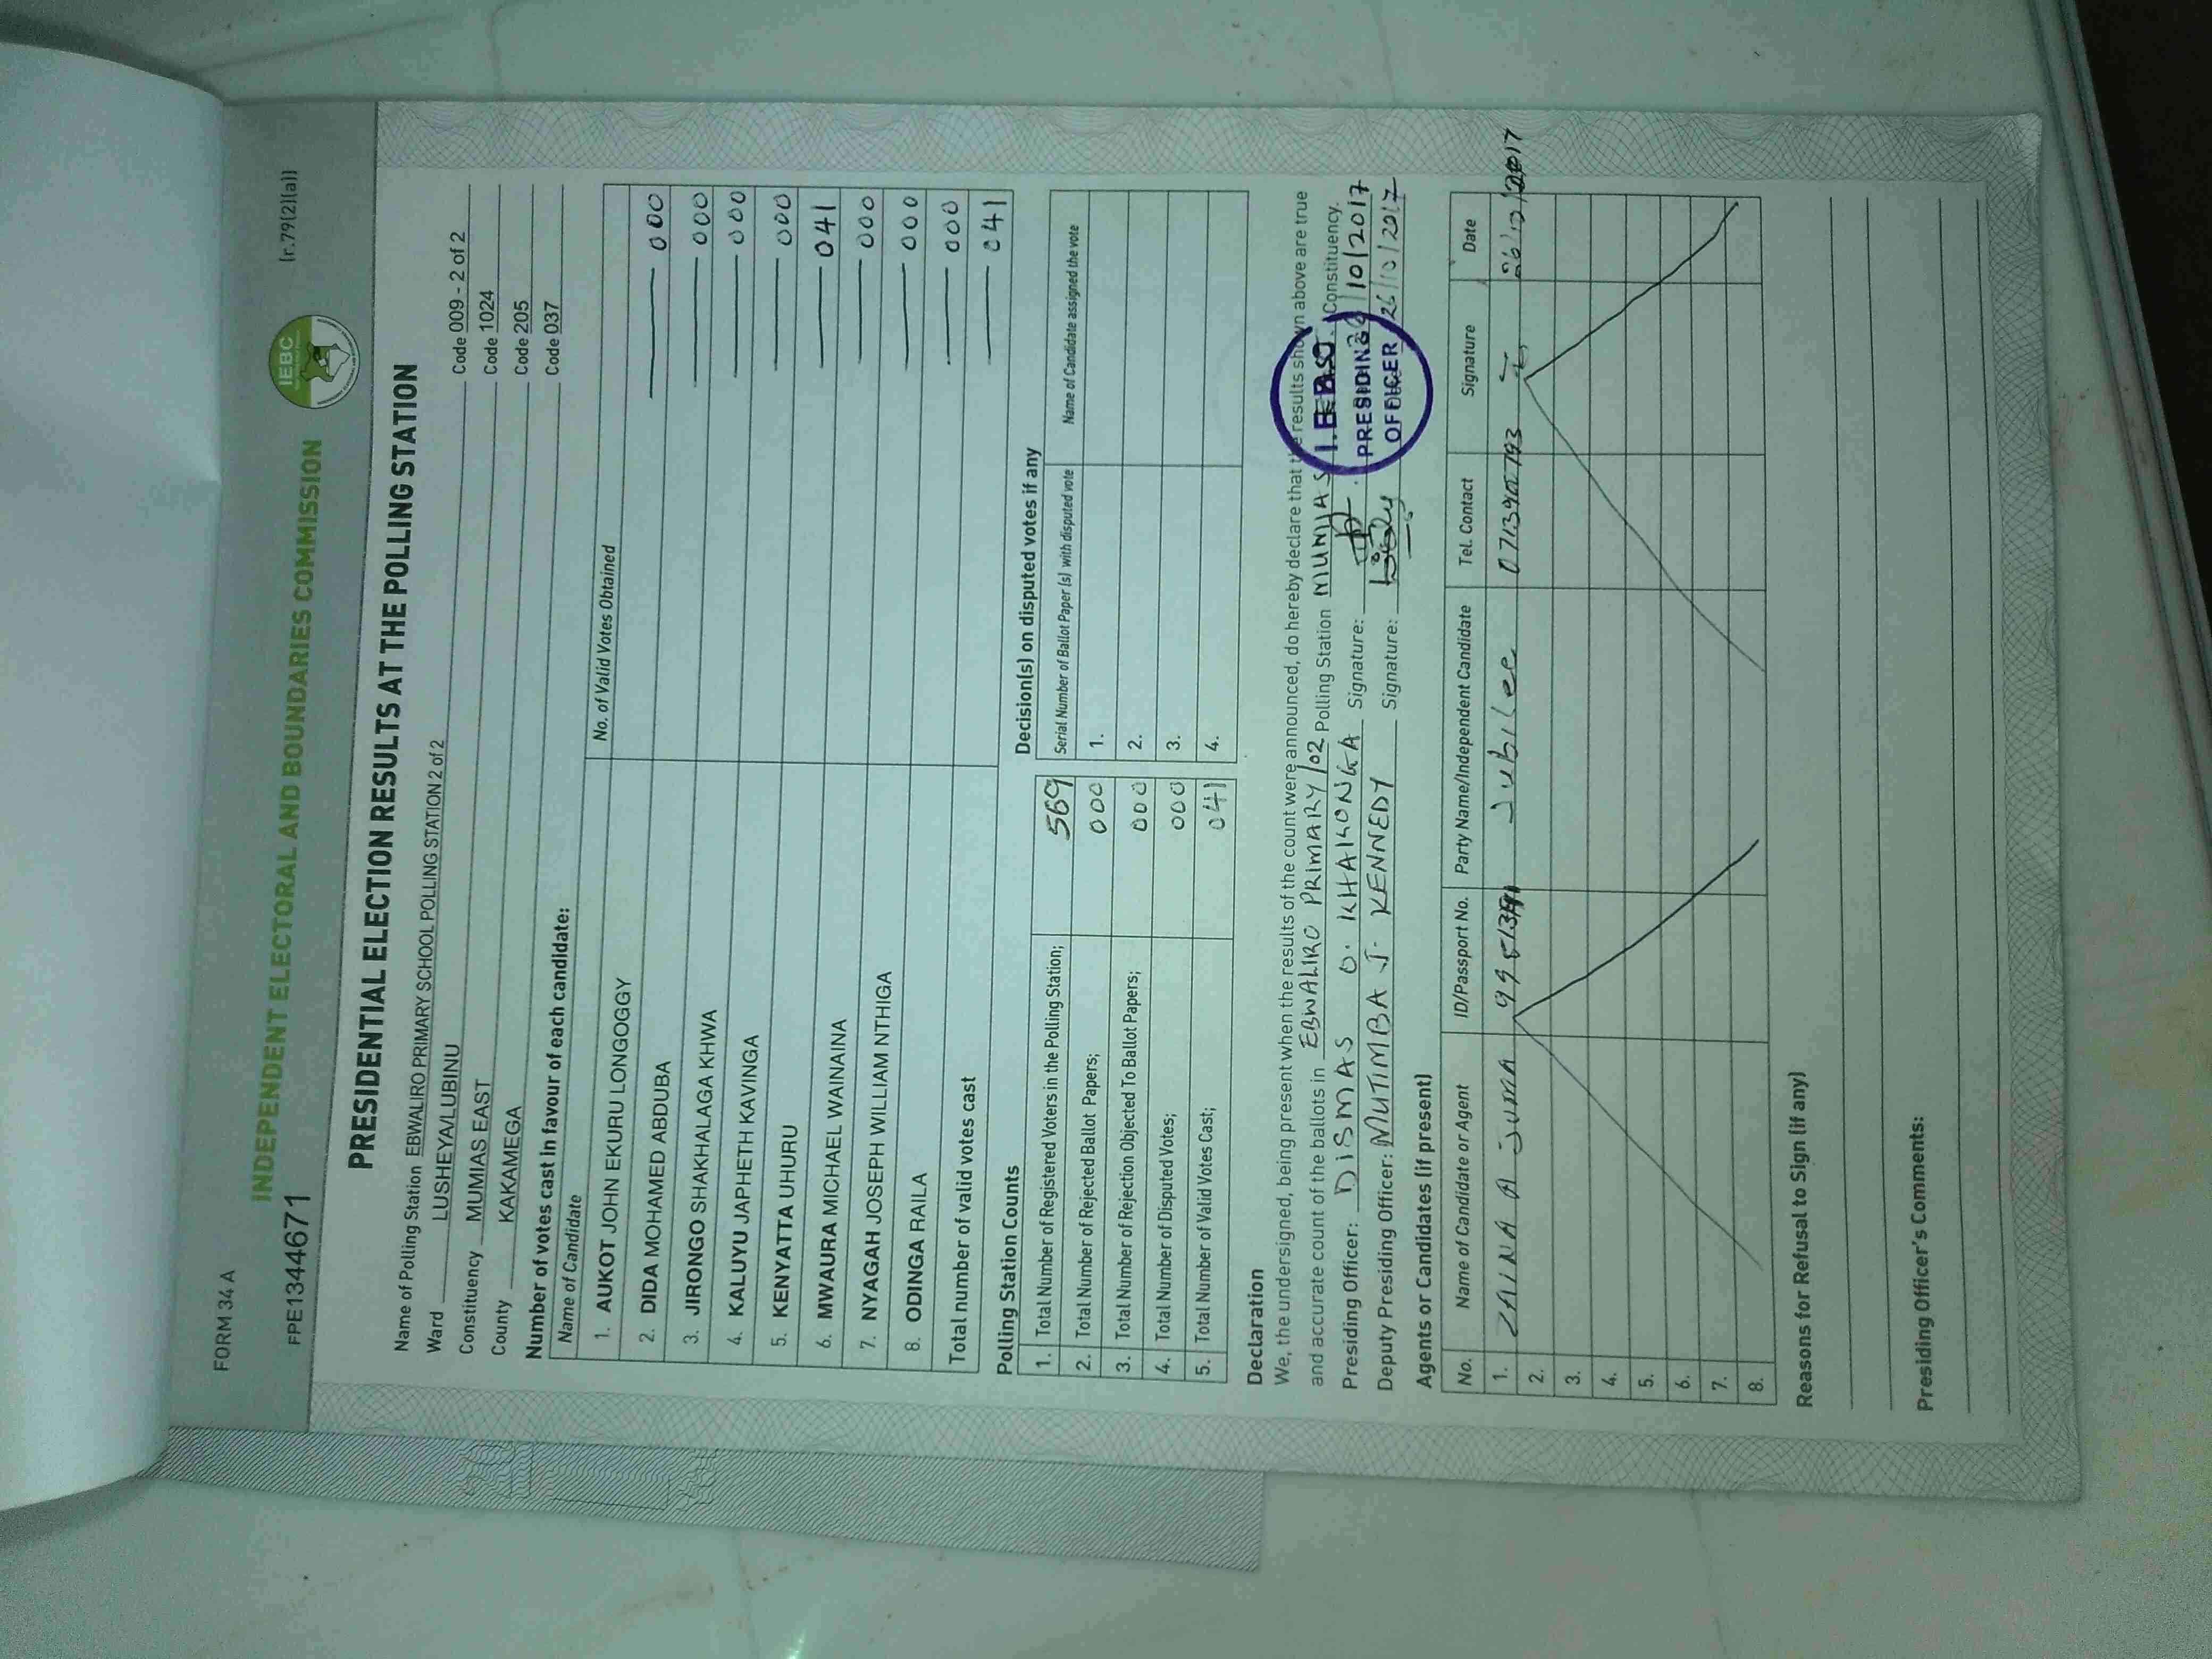 FORM 34 A
INDEPENDENT ELECTORAL AND BOUNDARIES COMMISSION
IEBC
(r.79(2)(a))
FPE1344671
PRESIDENTIAL ELECTION RESULTS AT THE POLLING STATION
Name of Polling Station EBWALIRO PRIMARY SCHOOL POLLING STATION 2 of 2 Code 009 - 2 of 2
Ward LUSHEYA/LUBINU Code 1024
Constituency MUMIAS EAST Code 205
County KAKAMEGA Code 037
Number of votes cast in favour of each candidate:
Name of Candidate No. of Valid Votes Obtained
1. AUKOT JOHN EKURU LONGOGGY 000
2. DIDA MOHAMED ABDUBA 000
3. JIRONGO SHAKHALAGA KHWA 000
4. KALUYU JAPHETH KAVINGA 000
5. KENYATTA UHURU 041
6. MWAURA MICHAEL WAINAINA 000
7. NYAGAH JOSEPH WILLIAM NTHIGA 000
8. ODINGA RAILA 000
Total number of valid votes cast 041
Polling Station Counts
1. Total Number of Registered Voters in the Polling Station; 569
2. Total Number of Rejected Ballot Papers; 000
3. Total Number of Rejection Objected To Ballot Papers; 000
4. Total Number of Disputed Votes; 000
5. Total Number of Valid Votes Cast; 041
Decision(s) on disputed votes if any
Serial Number of Ballot Paper (s) with disputed vote Name of Candidate assigned the vote
1.
2.
3.
4.
Declaration
We, the undersigned, being present when the results of the count were announced, do hereby declare that the results shown above are true
and accurate count of the ballots in EBWALIRO PRIMARY/02 Polling Station MUMIAS Constituency.
Presiding Officer: DISMAS O. KHAIKONGA Signature: 26/10/2017
Deputy Presiding Officer: MUTIMBA J. KENNEDY Signature: 26/10/2017
PRESIDING
OFFICER
Agents or Candidates (if present)
No. Name of Candidate or Agent ID/Passport No. Party Name/Independent Candidate Tel. Contact Signature Date
1. ZAINA A JUMA Jubilee 26/10/2017
2.
3.
4.
5.
6.
7.
8.
Reasons for Refusal to Sign (if any)
Presiding Officer's Comments: